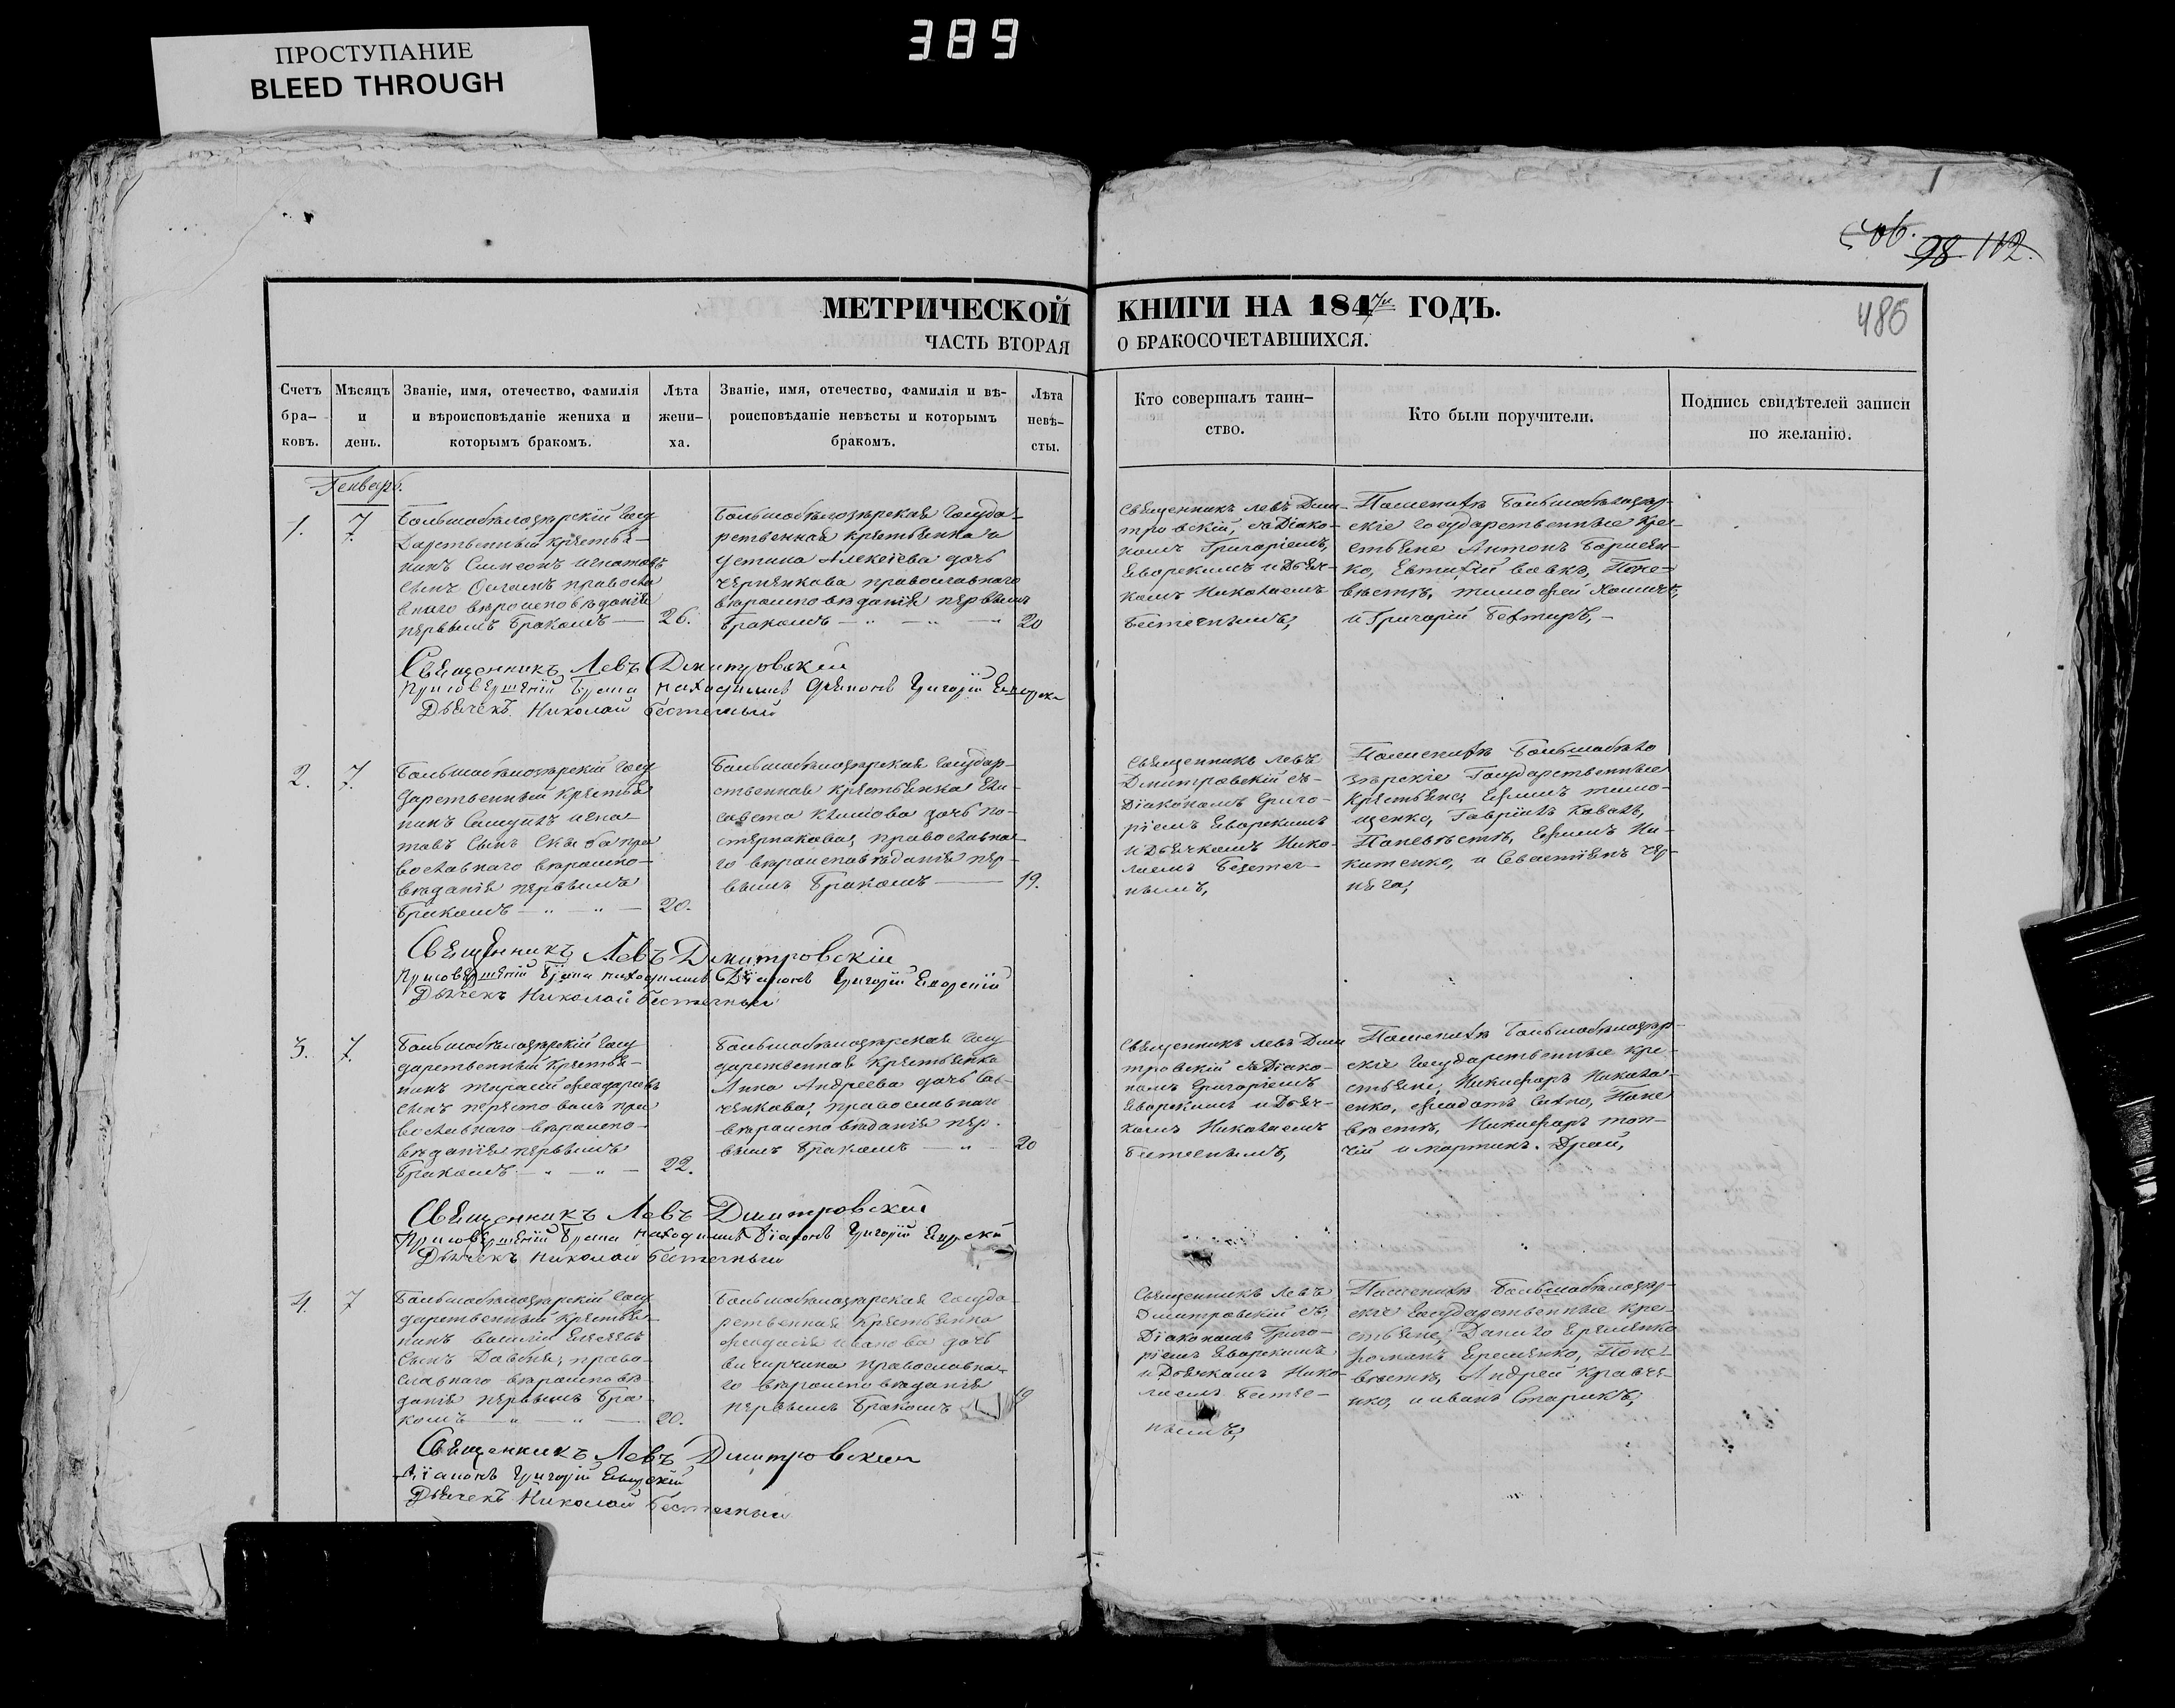 389
ПРОСТУПАНИЕ
BLEED THROUGH
98 112.
486
МЕТРИЧЕСКОЙ КНИГИ НА 1847й ГОДЪ.
ЧАСТЬ ВТОРАЯ О БРАКОСОЧЕТАВШИХСЯ.
Счетъ бра-
ковъ.
Мѣсяцъ
и
день.
Званіе, имя, отечество, фамилія
и вѣроисповѣданіе жениха и
которымъ бракомъ.
Лѣта
жени-
ха.
Званіе, имя, отечество, фамилія и вѣ-
роисповѣданіе невѣсты и которымъ
бракомъ.
Лѣта
невѣ-
сты.
Кто совершалъ таин-
ство.
Кто были поручители.
Подпись свидѣтелей записи
по желанію.
Генварь.
1.
7.
Большобѣлозѣрскій Госу
дарственный крестья-
нинъ Симеонъ Игнатовъ
сынъ православ
наго вѣроисповѣданія
первымъ бракомъ —
26.
Большобѣлозѣрская Госуда-
рственная крестьянка
устина Алексіева дочь
православнаго
вѣроисповѣданія первымъ
бракомъ — " — " — "
20
Священникъ левъ Дми-
тровскій, съ Діако-
номъ Григоріемъ,
Яворскимъ и Дьяч-
комъ Николаемъ
Безтечнымъ,
По женихѣ Большобѣлозѣр-
скіе государственные кре-
стьяне Антонъ
ко, Евтифій вовкъ, По не-
вѣстѣ, тимофей
и Григорій
Священникъ Левъ Дмитровскій
При совершеніи брака находились Діяконъ Григорій
Дьячекъ Николай Безтечный
2.
7.
Большобѣлозѣрскій Госу
дарственный крестья
нинъ Самуилъ игна-
товъ сынъ пра
вославнаго вѣроиспо-
вѣданія первымъ
бракомъ — " — " —
20.
Большобѣлозѣрская Государ-
ственная крестьянка Ели-
савета Климова дочь по-
стернакова, православна-
го вѣроисповѣданія пер-
вымъ бракомъ —
19.
Священникъ левъ
Дмитровскій съ-
Діакономъ Григо-
ріемъ Яворскимъ
и Дьячкомъ Нико-
лаемъ Безтеч-
нымъ,
По женихѣ Большобѣло
зѣрскіе Государственные
крестьяне, Ефимъ тимо-
щенко, Гавріилъ Ковалъ,
По невѣстѣ, Ефимъ Ни-
китенко, и Севастіянъ чер-
няга,
Священникъ Левъ Дмитровскій
При совершеніи брака находились Діяконъ Григорій Яворскій
Дьячекъ Николай Безтечный
3.
7.
Большобѣлозѣрскій Госу
дарственный крестья-
нинъ тарасій феодоровъ
сынъ перестовалъ пра
вославнаго вѣроиспо-
вѣданія первымъ
бракомъ — " — " —
22.
Большобѣлозѣрская Госу
дарственная крестьянка
Анна Андреева дочь Сав-
ченкова, православнаго
вѣроисповѣданія пер-
вымъ бракомъ — "
20
Священникъ левъ Дми
тровскій съ Діако-
номъ Григоріемъ
Яворскимъ и Дьяч-
комъ Николаемъ
Безтечнымъ,
По женихѣ Большобѣлозѣр-
скіе государственные кре-
стьяне, Никифоръ Никола-
енко, По не
вѣстѣ, Никифоръ топ-
чій и мартинъ. Драй,
Священникъ Левъ Дмитровскій
При совершеніи брака находились Діаконъ Григорій
Дьячекъ Николай Безтечный
4.
7
Большобѣлозѣрскій Госу
дарственный крестья-
нинъ василій Елисеевъ
сынъ Довбня, право-
славнаго вѣроисповѣ-
данія первымъ бра-
комъ — " — " —
20.
Большобѣлозѣрская Госуда-
рственная крестьянка
феодосія иванова дочь
православна-
го вѣроисповѣданія
первымъ бракомъ
Священникъ Левъ
Дмитровскій съ,
Діакономъ Григо-
ріемъ Яворскимъ
и Дьячкомъ Нико-
лаемъ Безтеч-
нымъ,
По женихѣ Большобѣлозѣр-
скіе государственные кре-
стьяне, Данило Еременко
романъ Еременко, По не-
вѣстѣ, Андрей Кравче-
нко, и иванъ Старикъ,
Священникъ Левъ Дмитровскій
Діаконъ Григорій Яворскій
Дьячекъ Николай Безтечный